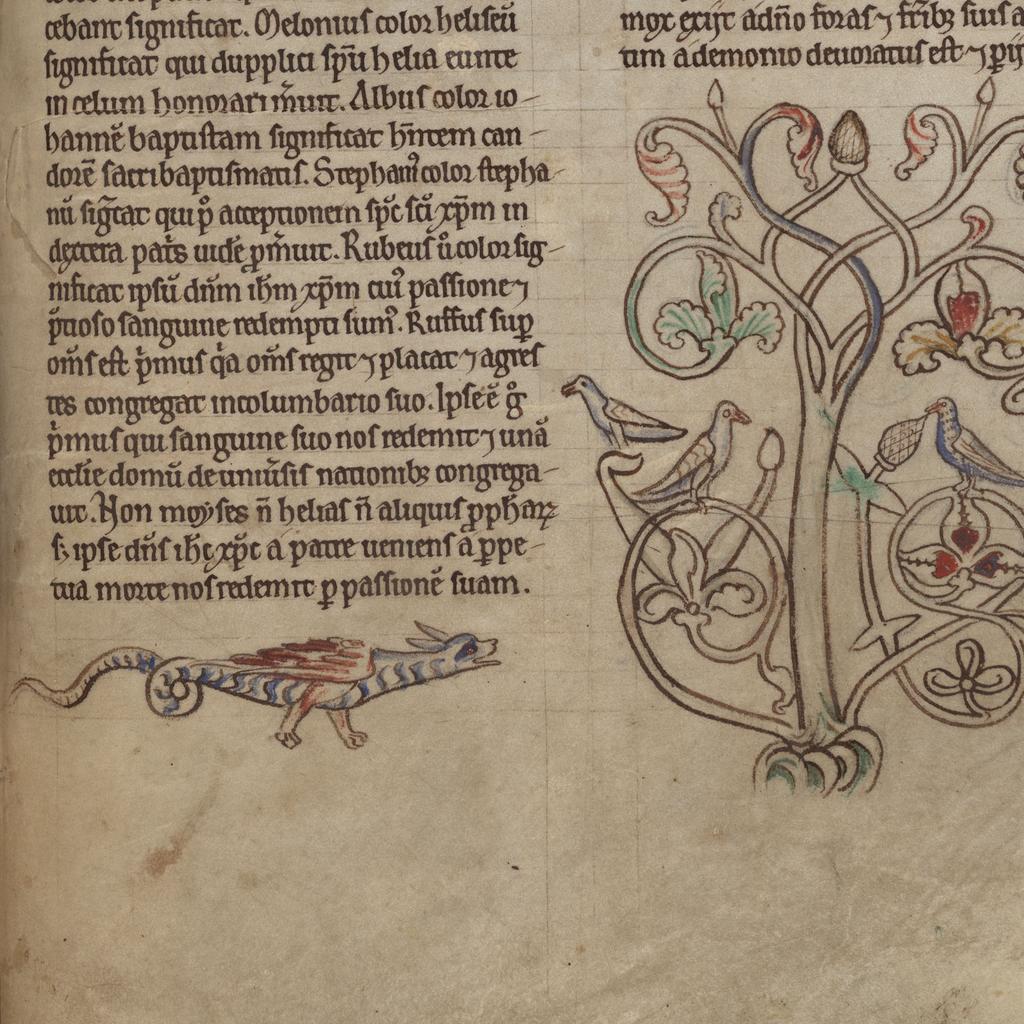 cebant significat. Melonius color heliseū
significat qui dupplici sp̄u helia eunte
in celum honorari m̄uit. Albus color io-
hannē baptistam significat h̄ntem can-
dorē sacri baptismatis. Stephani᷒ color stepha-
nū sig̅cat qui p̊ acceptionem sp̄c sc̄i xp̄m in
dextera pat̄s uide p̄muit. Rubeus ů color sig-
nificat ipsū dn̄m ih̄m xp̄m cui᷒ passione ⁊
p̄tioso sanguine redempti sum᷒. Ruffus sup̱
om̄s est p̄mus q̇a om̄s regit ⁊ placat ⁊ agres
tes congregat in columbario suo. Ipse ē g̊
p̄mus qui sanguine suo nos redemit ⁊ unā
eccl̄ie domū de uniu̓sis nationibꝫ congrega-
uit. Non moyses n̄ helias n̄ aliquis ꝓphaꝝ
ſꝫ ipse dn̄s ih̄c xp̄c a patre ueniens a ꝑpe-
tua morte nos redemit ꝑ passionē suam.
mox exijt ad dn̄o foras ⁊ fr̄ibꝫ suis
tim a demonio deuoratus est ⁊